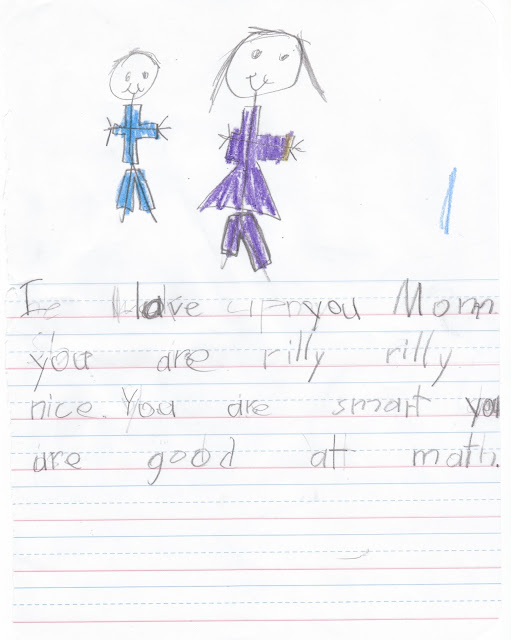 I love you Mom
you are rilly rilly
nice. You are smart you
are good at math.